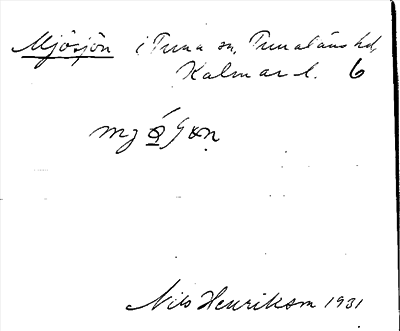 Mjösjön i Tuna sn, Tunaläns hd,
Kalmar l. 6
Nils Henrikson 1931